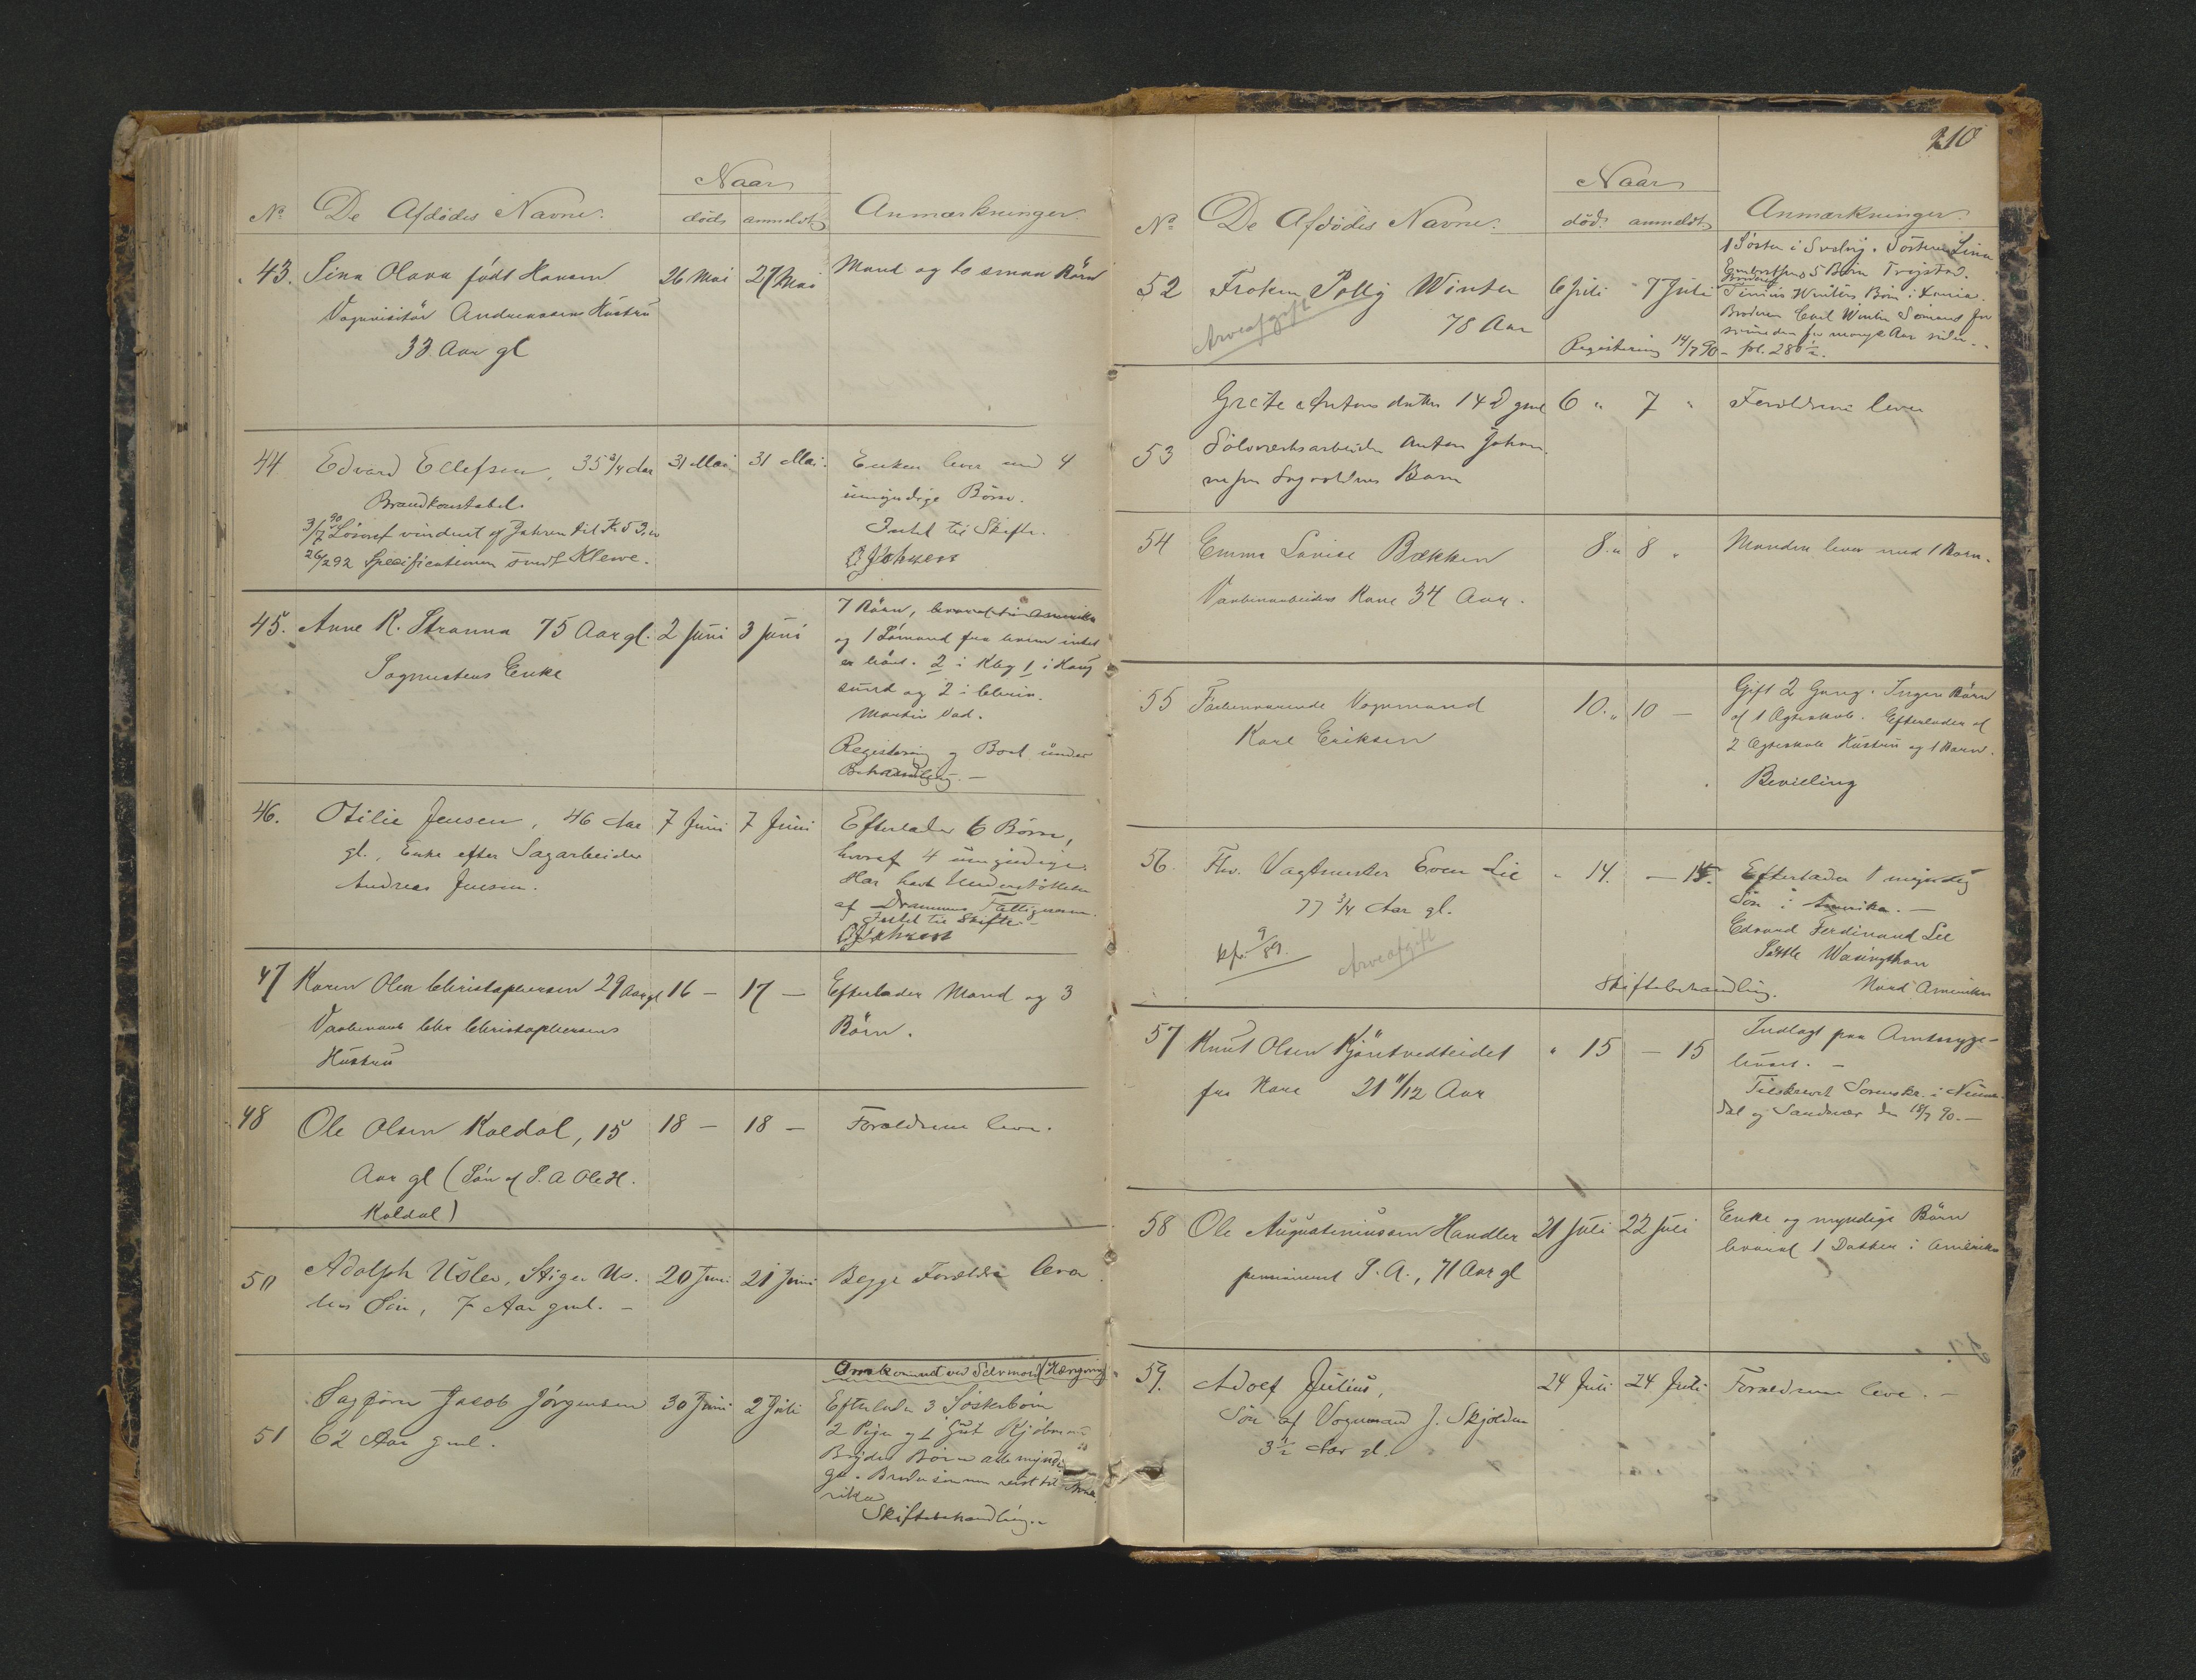 Naar
No. De Afdødes Navne. død. anmeldt. Anmærkninger.
43. Sina Olava født Hansen 26 Mai 27 Mai Mand og to smaa Børn
Vognvisitør Andreassens Hustru
33 Aar gl
44 Edvard Ellefsen, 35 3/4 Aar 31 Mai 31 Mai. Enken lever med 4
Brandkonstabel. umyndige Børn.
3/7 90 Løsøret vurderet af til Kr 53,
Intet til Skifte.
26/2 92 Specificationen sendt Klewe.
O Johnsen
45. Anne K. Stranna 75 Aar gl. 2 Juni 3 Juni 7 Børn, hvoraf to i Amerika
og 1 Sømand fra hvem intet
Sagmesters Enke
er hørt. 2 i Kbg 1 i Haug
sund og 2 i
Martin
Registrering og Boet under
Behandling. —
46. Otilie Jensen, 46 Aar 7 Juni 7 Juni Efterlader 6 Børn,
gl., Enke efter Sagarbeider hvoraf 4 umyndige.
Andreas Jensen. Har havt Understøttelse
af Drammens Fattigvæsen.
Intet til Skifte.
O Johnsen
47 Karen Olea Christophersen 29 Aar gl 16 — 17 — Efterlader Mand og 3
Chr Christophersens Børn.
Hustru
48 Ole Olsen Koldal, 15 18 — 18 — Forældrene leve.
Aar gl (Søn af S. A Ole H.
Koldal)
50 Adolph Usler, Stiger Us- 20 Juni 21 Juni Begge Forældre leve.
lers Søn, 7 Aar gml. —
Omkommet ved Selvmord (Hængning)
51 Sagfører Jacob Jørgensen 30 Juni 2 Juli Efterlader 3 Søskebørn
62 Aar gml. 2 Piger og 1 Gut Kjøbmand
Børn alle myndi
ge. reist til Ame
rika
Skiftebehandling.
210
Naar
No. De Afdødes Navne. død. anmeldt. Anmærkninger.
1 Søster i Svelvig. Søsteren Lina
5 Børn Trysted.
52 Frøken Polly Winter 6 Juli 7 Juli Winters Børn i
Arveafgift 78 Aar Broderen Emil Winter Sømand for
svunden for mange Aar siden.
Registrering 14/7 90 — fol. 280 1/2.
Grete Antons datter 14 D gml 6 " 7 " Forældrene lever
53 Sølvverksarbeider Anton Johan
nesen Barn
54 Emma Lovise Bækken 8 " 8 " Manden lever med 1 Barn.
Kone 34 Aar.
55 Forhenværende Vognmand 10. " 10 — Gift 2 Gang. Ingen Børn
Karl Eriksen af 1 Ægteskab. Efterlader af
2 Ægteskab Hustru og 1 Barn.
Bevilling
56. Fhv. Vagtmester Even Lie " 14. — 15. Efterlader 1 myndig
77 3/4 Aar gl. Søn i Amerika. —
Edvard Ferdinand Lie
9/89. Arveafgift Wasingthon
Skiftebehandling. Nord Amerika
57 Knut Olsen Kjøntvedteidet " 15 — 15 Indlagt paa Amtssyge-
fra Hove 21 11/12 Aar huset. —
Tilskrevet Sorenskr. i Numme-
dal og Sandsvær den 18/7 90. —
58 Ole Augustiniussen Handler 21 Juli 22 Juli Enke og myndige Børn
pensioneret S. A., 71 Aar gl hvoraf 1 Datter i Amerika
59. Adolf Julius, 24 Juli 24 Juli Forældrene leve. —
Søn af Vognmand J. Skjolden
3 1/2 Aar gl.